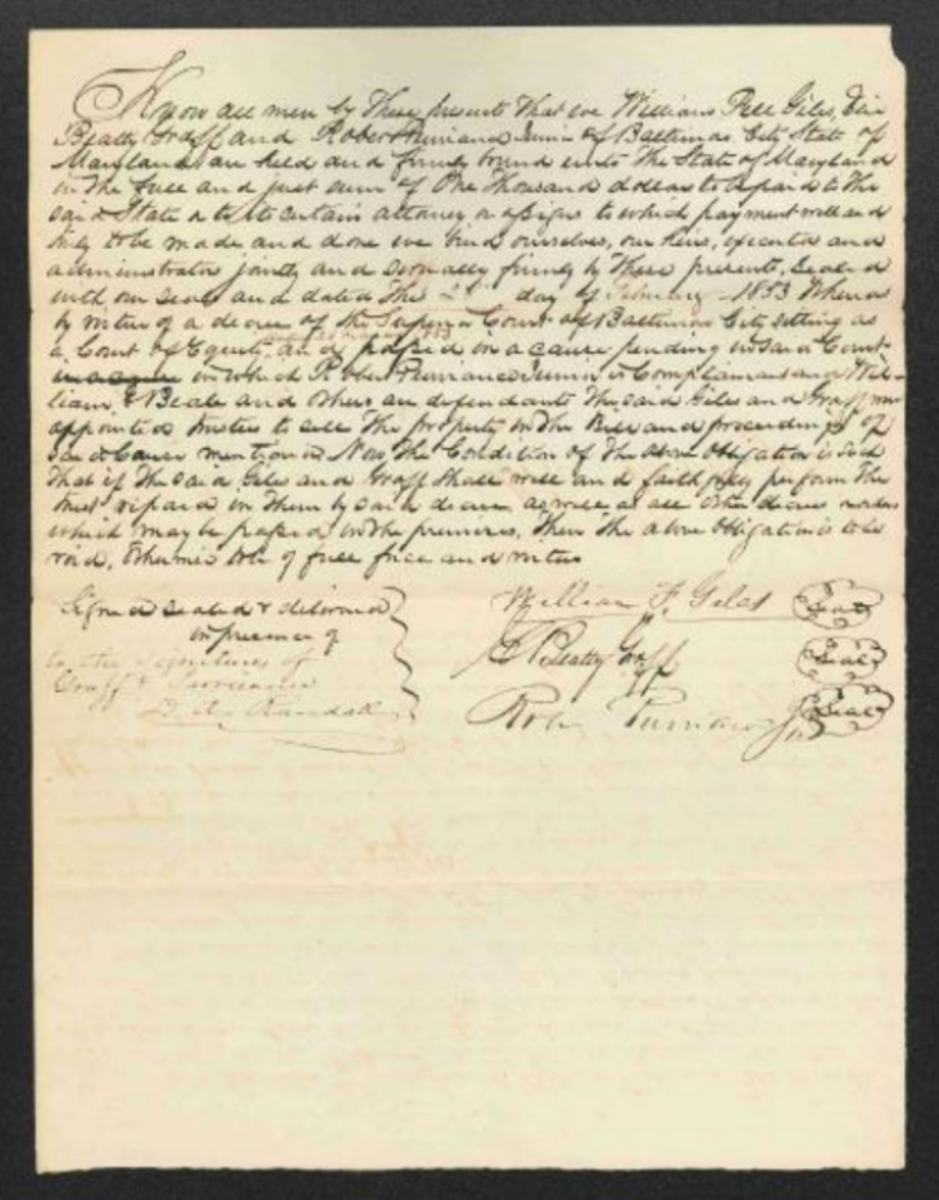 Know all men by These presents That we William Fell Giles,
Beatty Graff and Robert Purviance Junior of Baltimore City State of
Maryland are held and firmly bound unto The State of Maryland
in The full and just sum of One Thousand dollars to be paid to The
said State or to its certain attorney or assigns to which payment well and
truly to be made and done we bind ourselves, our heirs, executors and
administrators jointly and severally firmly by These presents, Sealed
with our seals and dated The day of February 1853 Whereas
by virtue of a decree of the Superior Court of Baltimore City sitting as
a Court of Equity, and passed in a cause pending in said Court
in which Robert Purviance Junior is Complainant and Wil-
liam Beale and others are defendants The said Giles and Graff were
appointed trustees to sell The property in The Bill and proceedings of
said Cause mentioned Now The Condition of The above Obligation is such
That if The said Giles and Graff shall well and faithfully perform The
trust reposed in Them by said decree as well as all other decrees orders
which may be passed in The premises, Then The above obligation is to be
void, Otherwise to be of full force and virtue
Signed sealed & delivered
in presence of
to the signatures of
Graff & Purviance
Randall
William F. Giles Seal
E Beatty Graff Seal
Robt Purviance Jr Seal